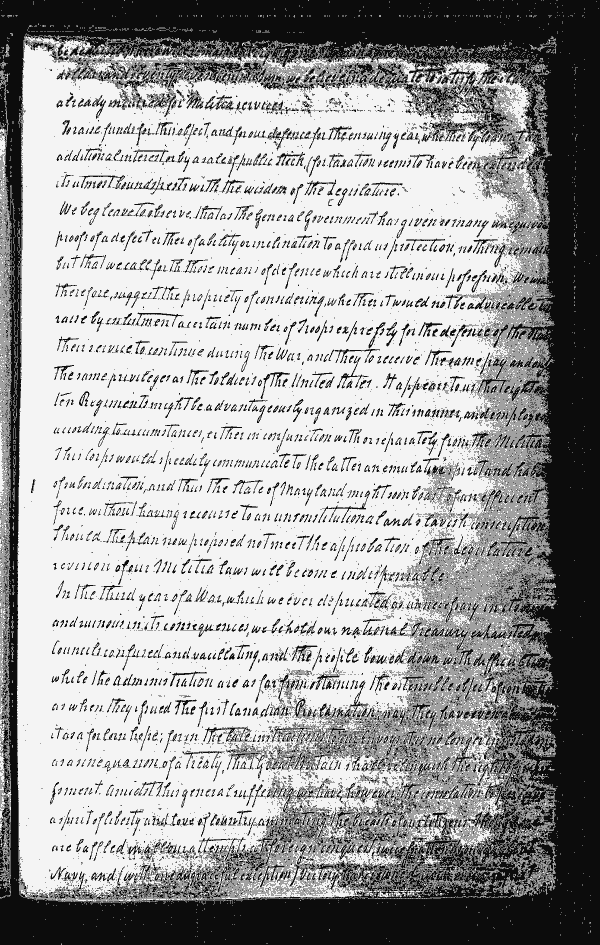 dollars and seventy we believe adequate to satisfy the
already incurred for Militia services.
To raise funds for this object, and for our defence for the ensuing year, whether by loans at an
additional interest, or by a sale of public Stock, (for taxation seems to have been extended to
its utmost bounds) rests with the wisdom of the Legislature.
We beg leave to observe, that as the General Government has given so many unequivocal
proofs of a defect either of ability or inclination to afford us protection, nothing remains
but that we call forth those means of defence which are still in our possession. We would
therefore, suggest the propriety of considering, whether it would not be adviseable to
raise by enlistment a certain number of Troops expressly for the defence of the State
their service to continue during the War, and they to receive the same pay and
the same privileges as the Soldiers of the United States. It appears to us that eight or
ten Regiments might be advantageously organized in this manner, and employed
according to circumstances, either in conjunction with or separately from the Militia.
This Corps would speedily communicate to the latter an emulative spirit and habits
of subordination, and thus the State of Maryland might soon boast of an efficient
force, without having recourse to an unconstitutional and slavish conscription
Should the plan now proposed not meet the approbation of the Legislature
revision of our Militia laws will become indispensable.
In the third year of a War, which we ever deprecated as unnecessary in
and ruinous in its consequences, we behold our national Treasury exhausted,
Councils confused and vacillating, and the people bowed down with difficulties
while the administration are as far from obtaining the ostensible object of
as when they issued the first Canadian Proclamation: nay, they have even
it as a forlorn hope; for in the late instructions they no longer
as a sine qua non of a treaty, that Great Britain shall relinquish the right of
Amidst this general suffering we have, however the consolation to
a spirit of liberty and love of Country animating the breasts of our Citizens.
are baffled in all our attempts at foreign conquest,
Navy, and (with one disgraceful exception) Victory